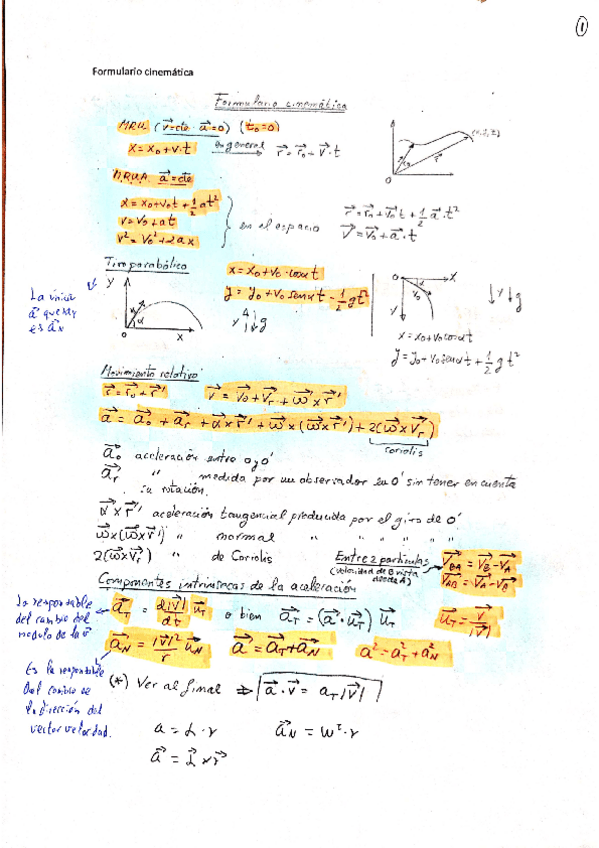 ①
Formulario cinemática
Formulario cinemática
M.R.U. (v⃗=cte a⃗=0) (t₀=0)
x=x₀+v·t en general → r⃗=r⃗₀+v⃗·t
M.R.U.A. a⃗=cte
x=x₀+v₀t+½at²
v=v₀+at
v²=v₀²+2ax
en el espacio
r⃗=r⃗₀+v⃗₀t+½a⃗·t²
v⃗=v⃗₀+a⃗·t
Tiro parabólico
x=x₀+v₀·cosα t
y=y₀+v₀senαt-½gt²
y↑↓g
Y
X
0
α
0
X
α
v₀
Y
↓Y↓g
x=x₀+v₀cosαt
y=y₀+v₀senαt+½gt²
La única
a⃗ que hay
es a⃗N
Movimiento relativo
r⃗=r⃗₀+r⃗' v⃗=v⃗₀+v⃗r+ω⃗×r⃗'
a⃗=a⃗₀+a⃗r+α⃗×r⃗'+ω⃗×(ω⃗×r⃗')+2(ω⃗×v⃗r)
coriolis
a⃗₀ aceleración entre 0 y 0'
a⃗r " medida por un observador en 0' sin tener en cuenta
su rotación.
α⃗×r⃗' aceleración tangencial producida por el giro de 0'
ω⃗×(ω⃗×r⃗') " normal " " " " "
2(ω⃗×v⃗r) " de Coriolis
Entre 2 partículas
(velocidad de B vista
desde A)
v⃗BA=v⃗B-v⃗A
v⃗AB=v⃗A-v⃗B
Componentes intrínsecas de la aceleración
La responsable
del cambio del
módulo de la v⃗
a⃗T=d|v⃗|/dt u⃗T o bien a⃗T=(a⃗·u⃗T)u⃗T u⃗T=v⃗/|v⃗|
a⃗N=|v⃗|²/r u⃗N a⃗=a⃗T+a⃗N a²=a²T+a²N
Es la responsable
del cambio de
la dirección del
vector velocidad.
(*) Ver al final ⇒ a⃗·v⃗=aT|v⃗|
a=α·r a⃗N=ω²·r
a⃗=α⃗×r⃗